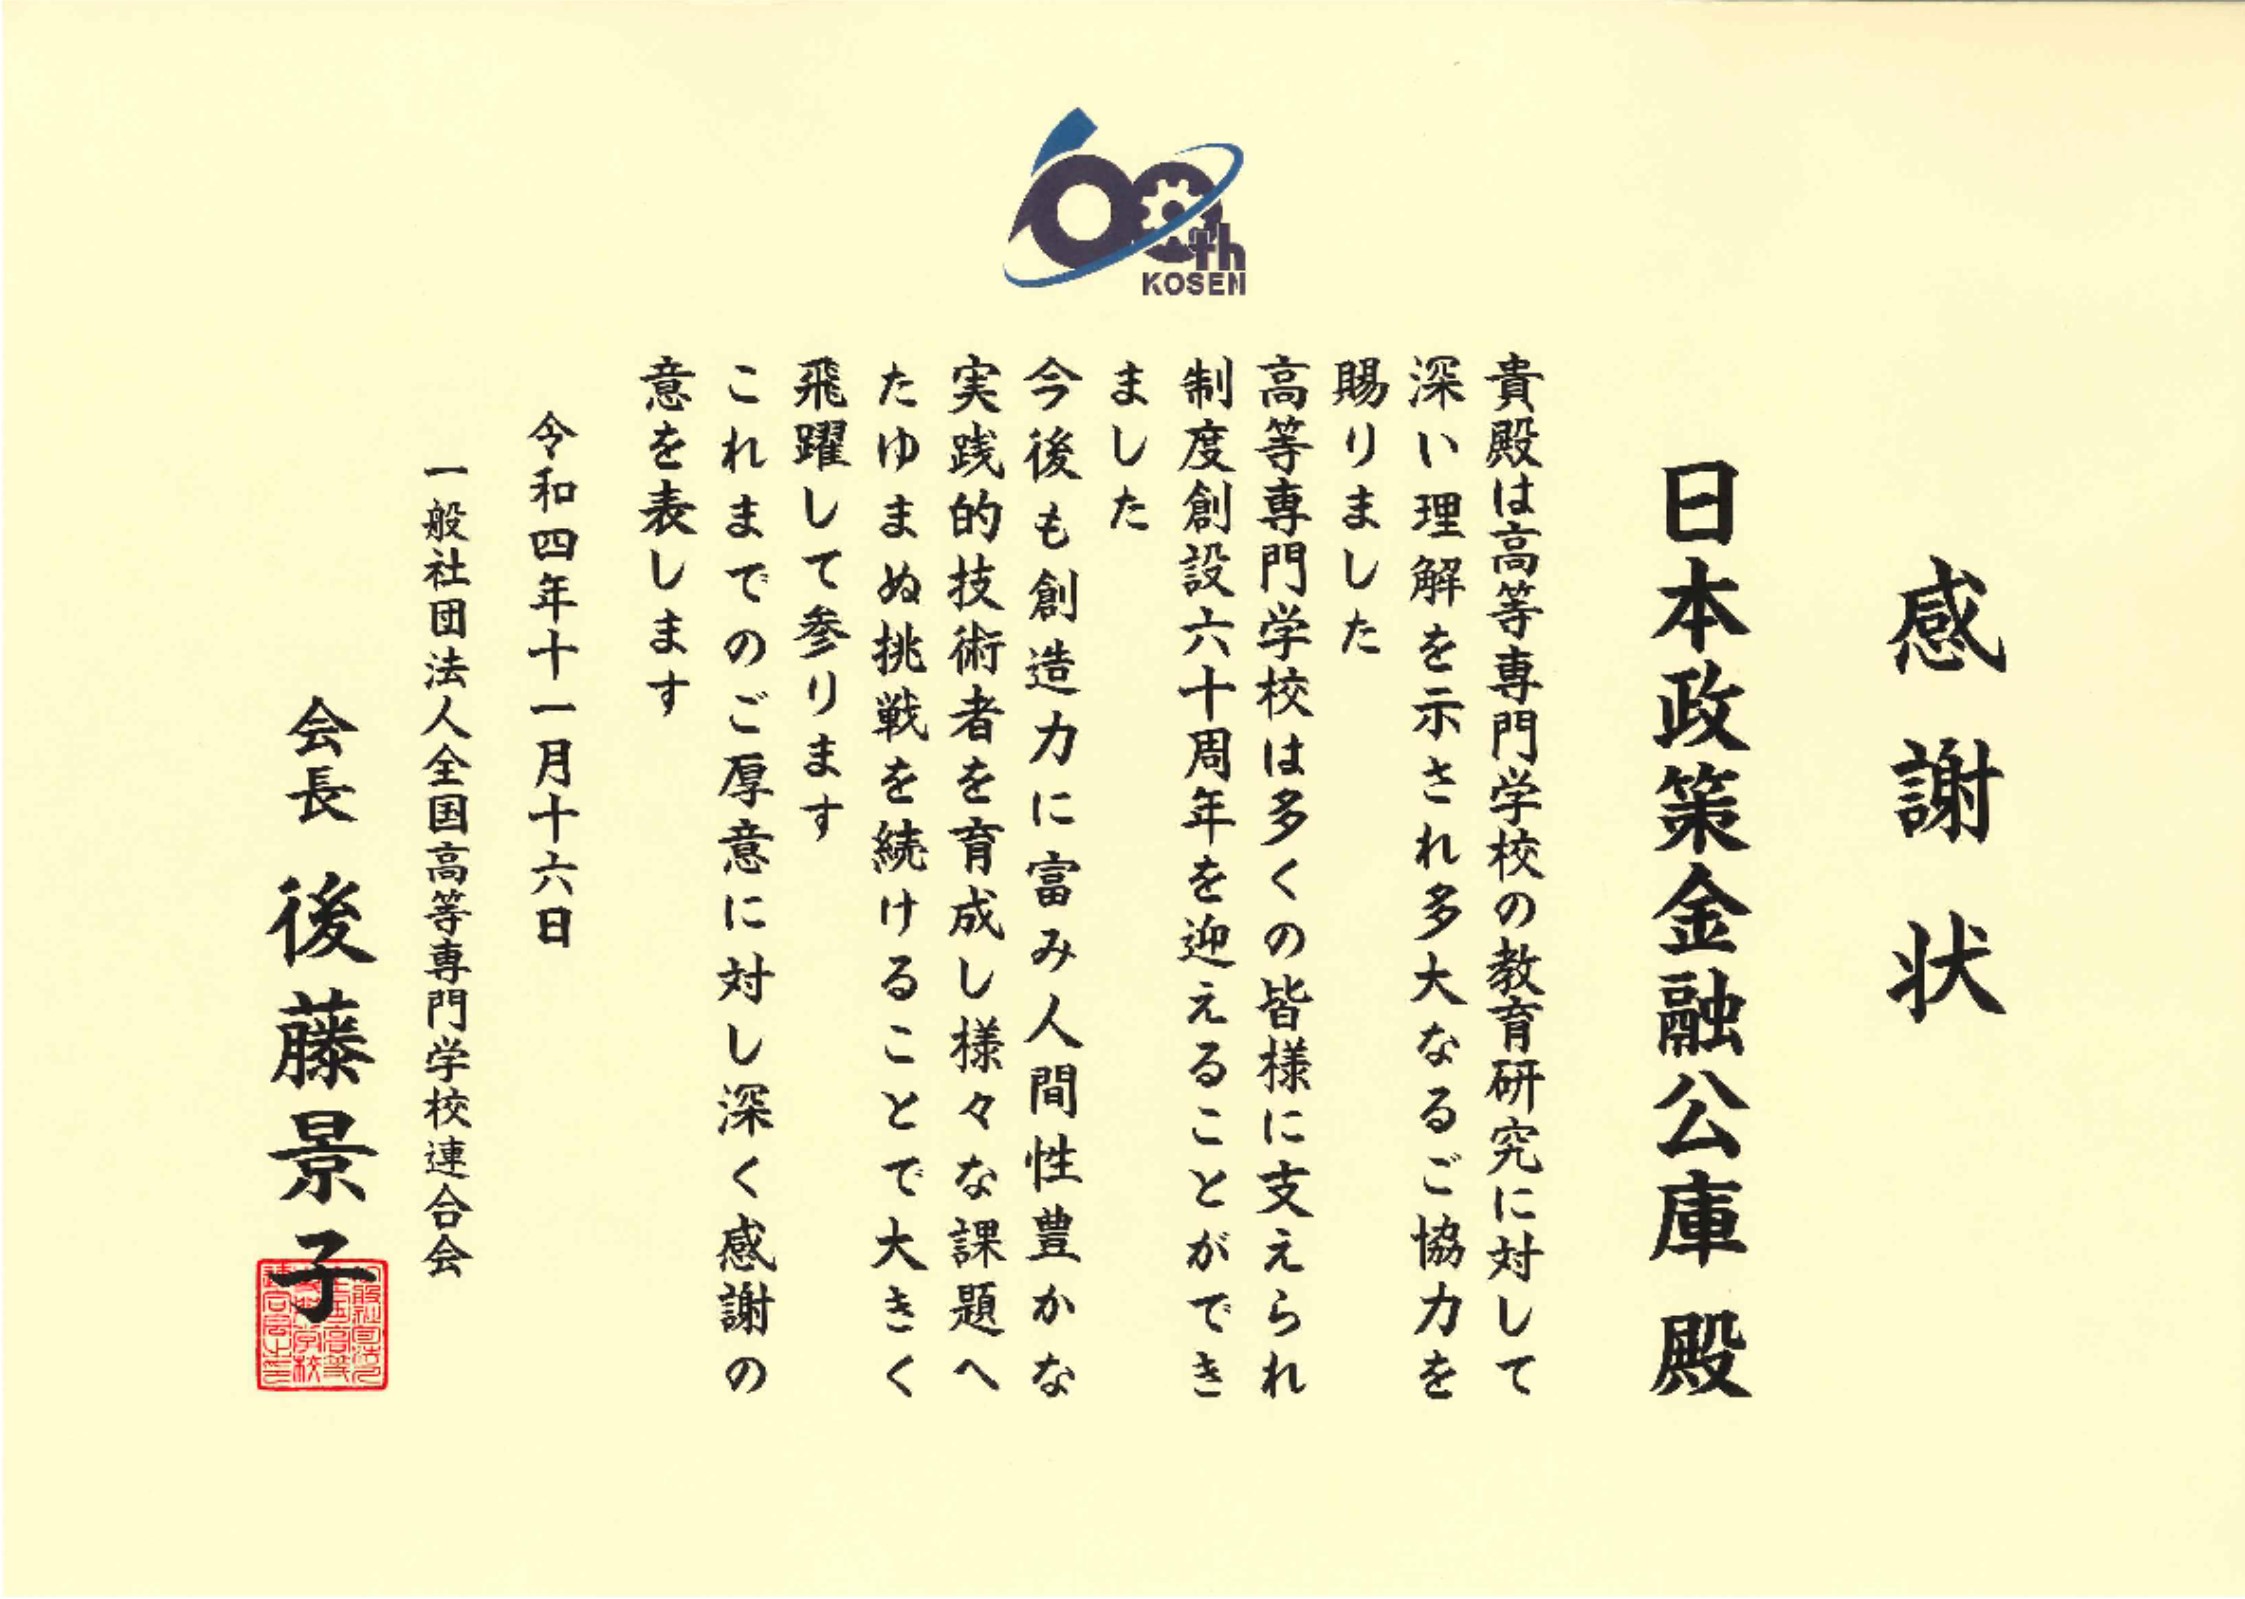 60th
KOSEN
感謝状
日本政策金融公庫 殿
貴殿は高等専門学校の教育研究に対して
深い理解を示され多大なるご協力を
賜りました
高等専門学校は多くの皆様に支えられ
制度創設六十周年を迎えることができ
ました
今後も創造力に富み人間性豊かな
実践的技術者を育成し様々な課題へ
たゆまぬ挑戦を続けることで大きく
飛躍して参ります
これまでのご厚意に対し深く感謝の
意を表します
令和四年十一月十六日
一般社団法人全国高等専門学校連合会
会長 後藤景子